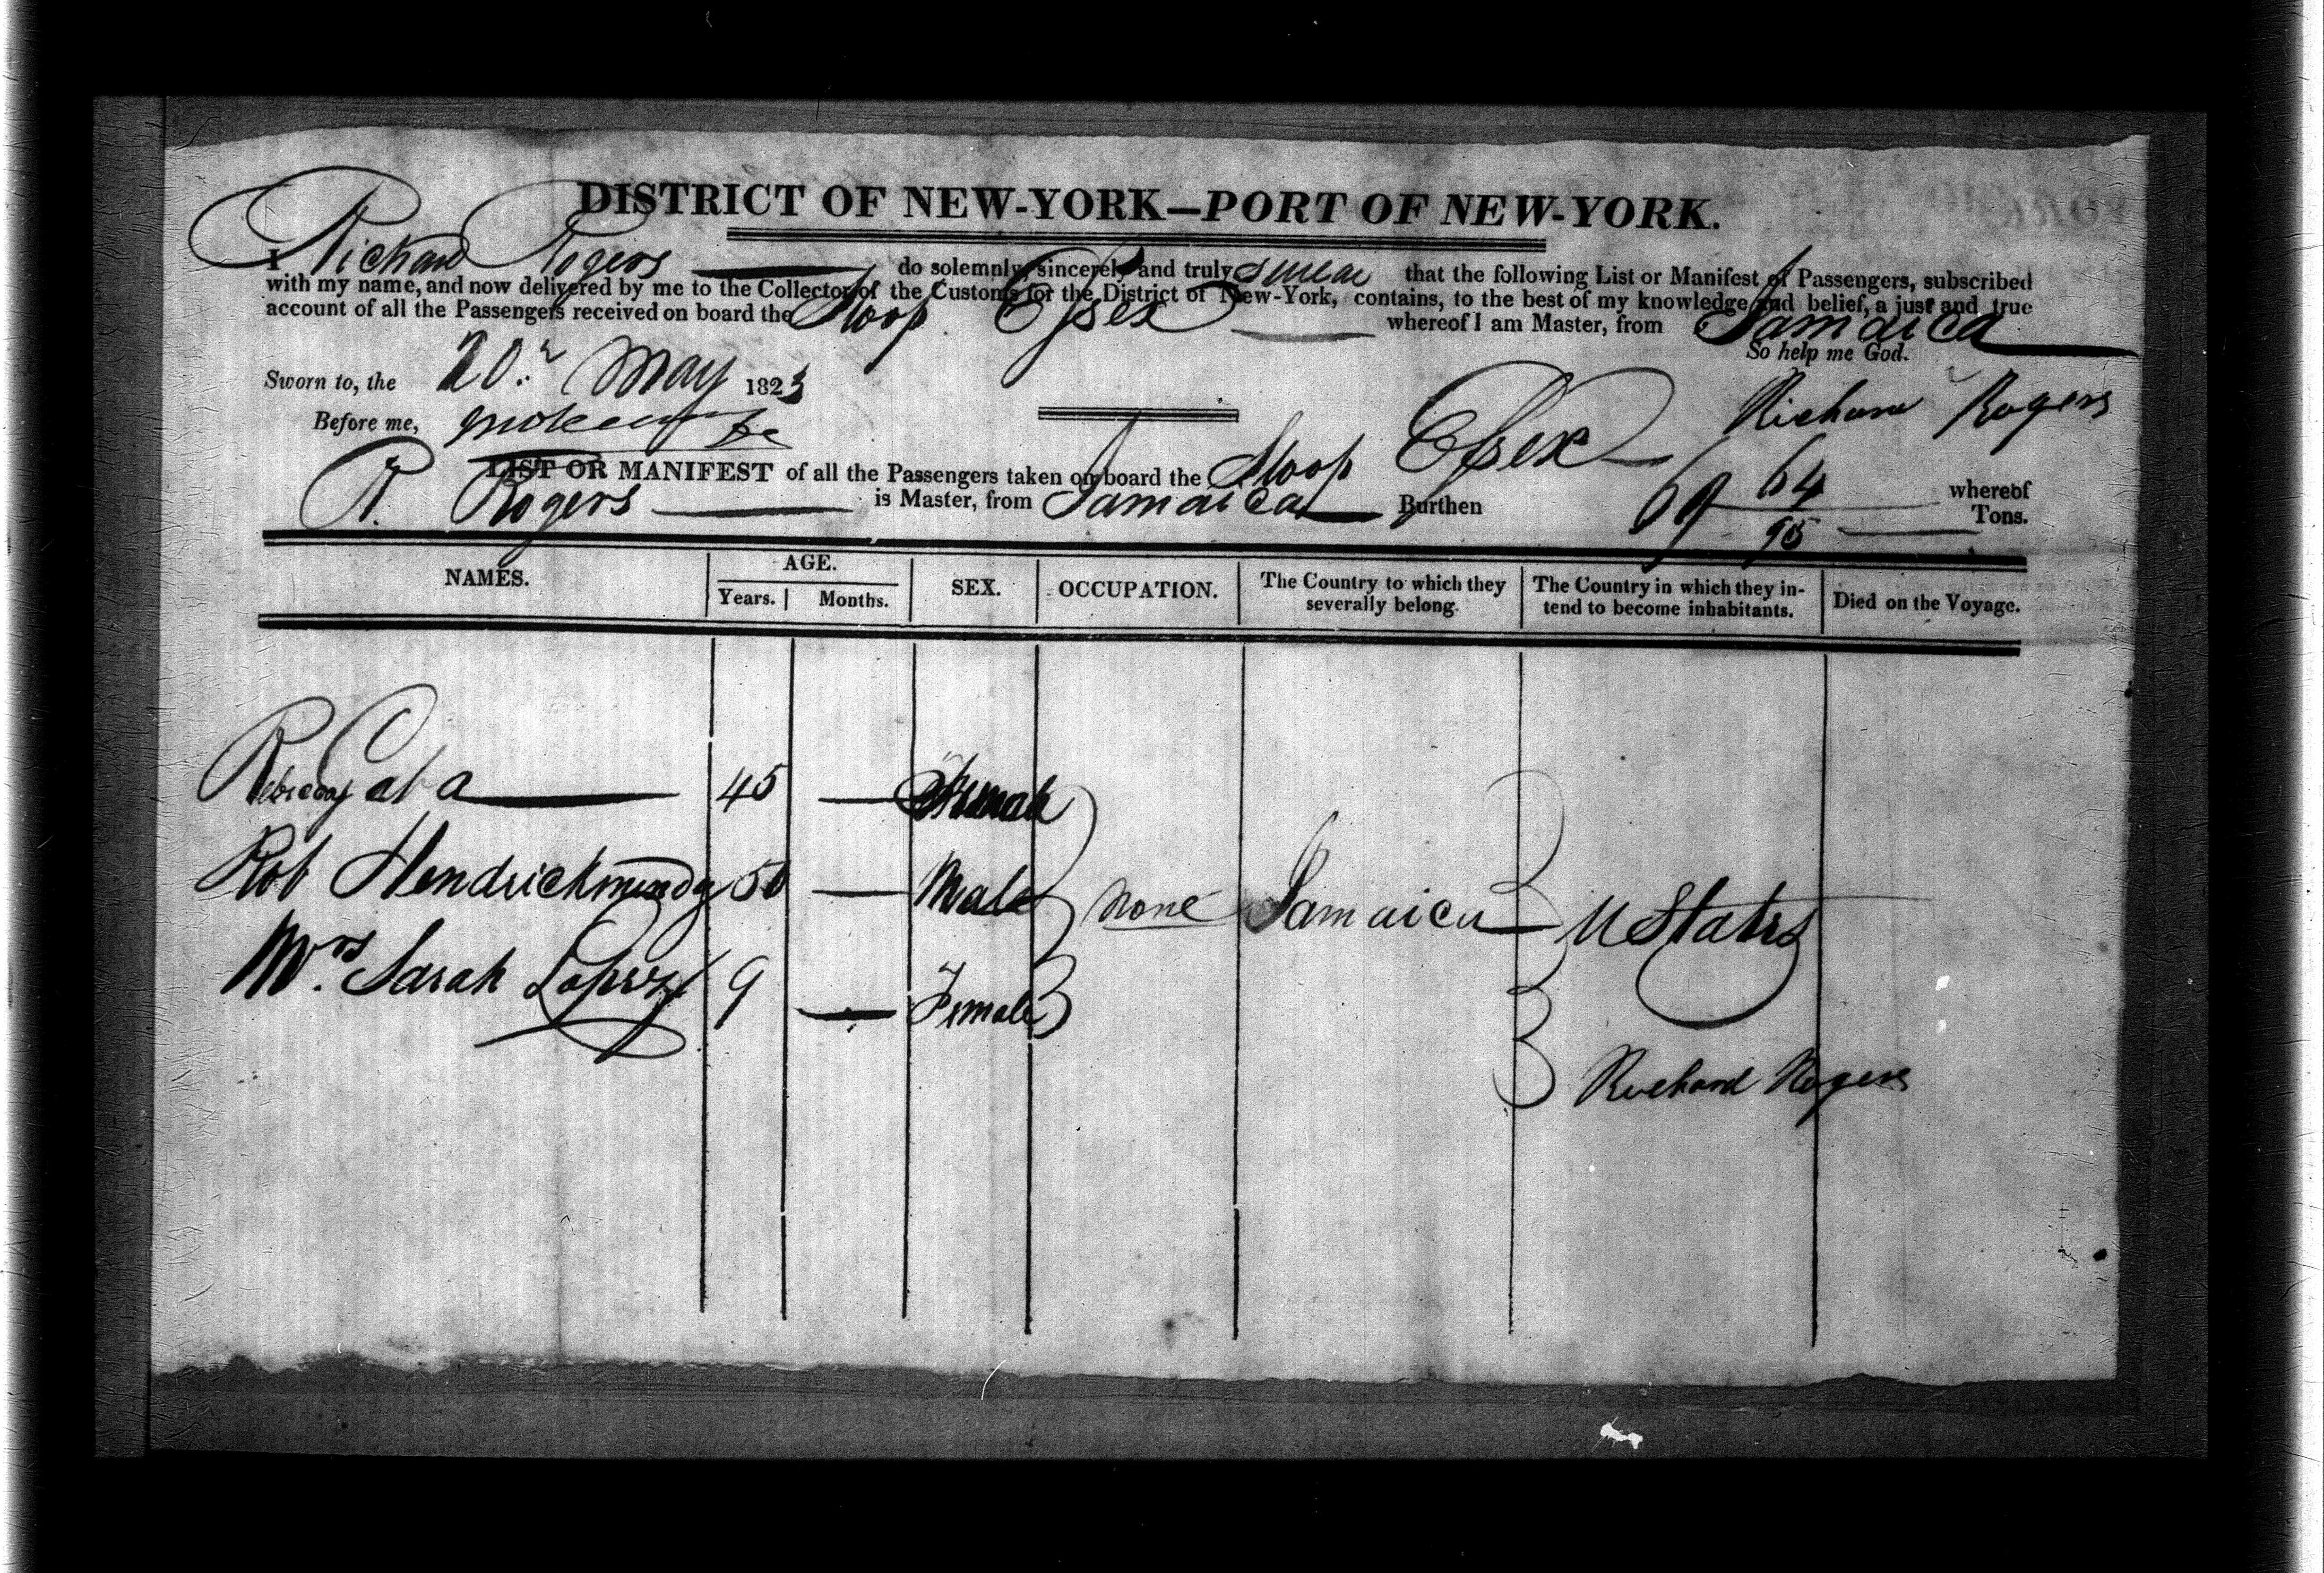 DISTRICT OF NEW-YORK—PORT OF NEW-YORK.
I Richard Rogers do solemnly, sincerely and truly swear that the following List or Manifest of Passengers, subscribed
with my name, and now delivered by me to the Collector of the Customs for the District of New-York, contains, to the best of my knowledge and belief, a just and true
account of all the Passengers received on board the Sloop Essex whereof I am Master, from Jamaica
So help me God.
Sworn to, the 20th May 1823
Richard Rogers
Before me,
LIST OR MANIFEST of all the Passengers taken on board the Sloop Essex whereof
R. Rogers is Master, from Jamaica Burthen 69 64/95 Tons.
NAMES. AGE. Years. Months. SEX. OCCUPATION. The Country to which they severally belong. The Country in which they intend to become inhabitants. Died on the Voyage.
45 — Female
Rob 50 — Male none Jamaica U States
Mrs. Sarah Lopez 9 — Female
Richard Rogers